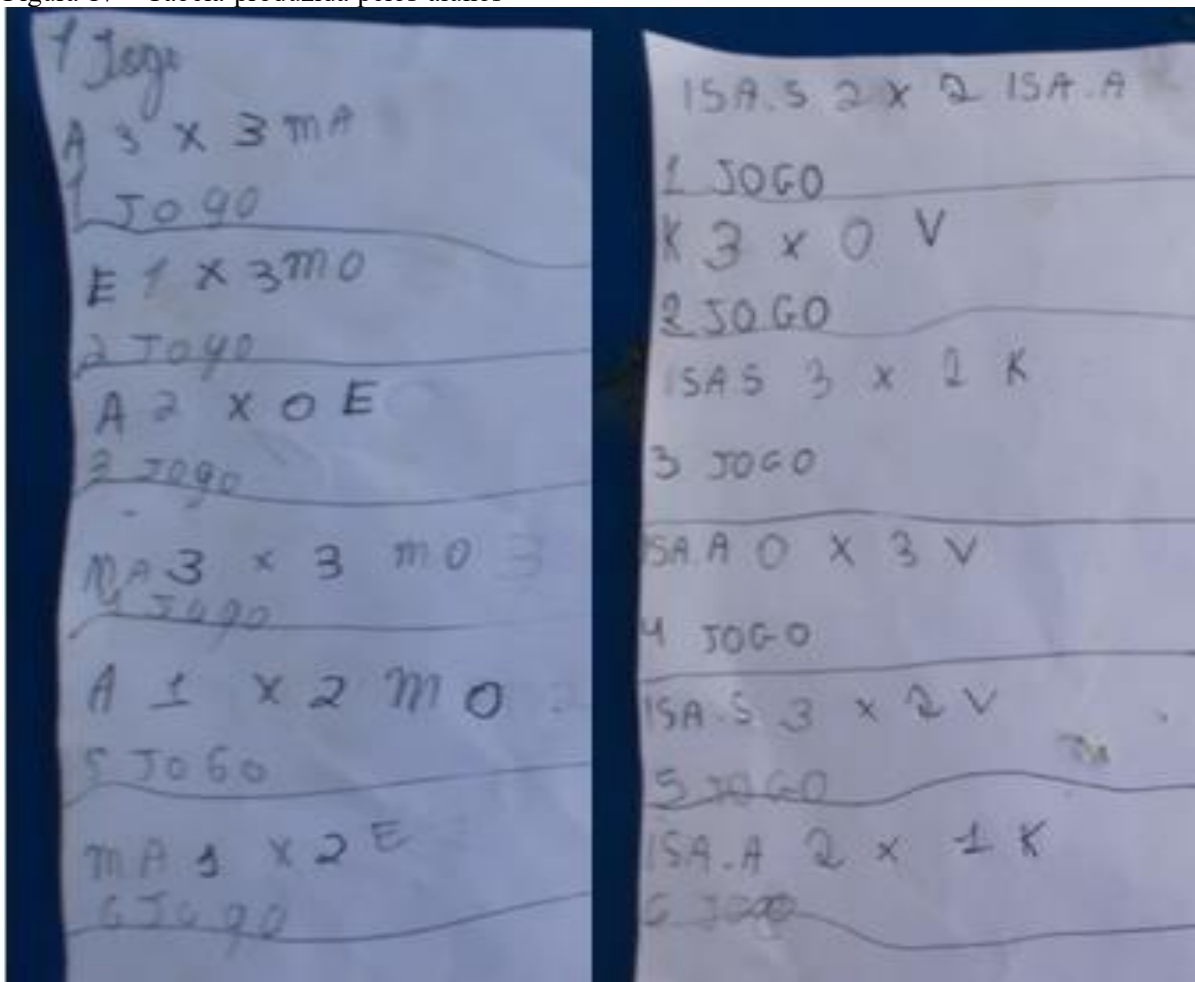 1 Jogo
A 3 X 3 MA
1 JOgO
E 1 X 3 MO
2 JOgO
A 2 X O E
3 JOgO
MA 3 X 3 MO 3
4 JOgO
A 1 X 2 MO 2
5 JOGO
MA 1 X 2 E
6 JOgO
ISA.S 2 X 2 ISA.A
1 JOGO
K 3 X 0 V
2 JOGO
ISA S 3 X 2 K
3 JOGO
ISA.A 0 X 3 V
4 JOGO
ISA.S 3 X 2 V
5 JOGO
ISA.A 2 X 1 K
6 JOgO